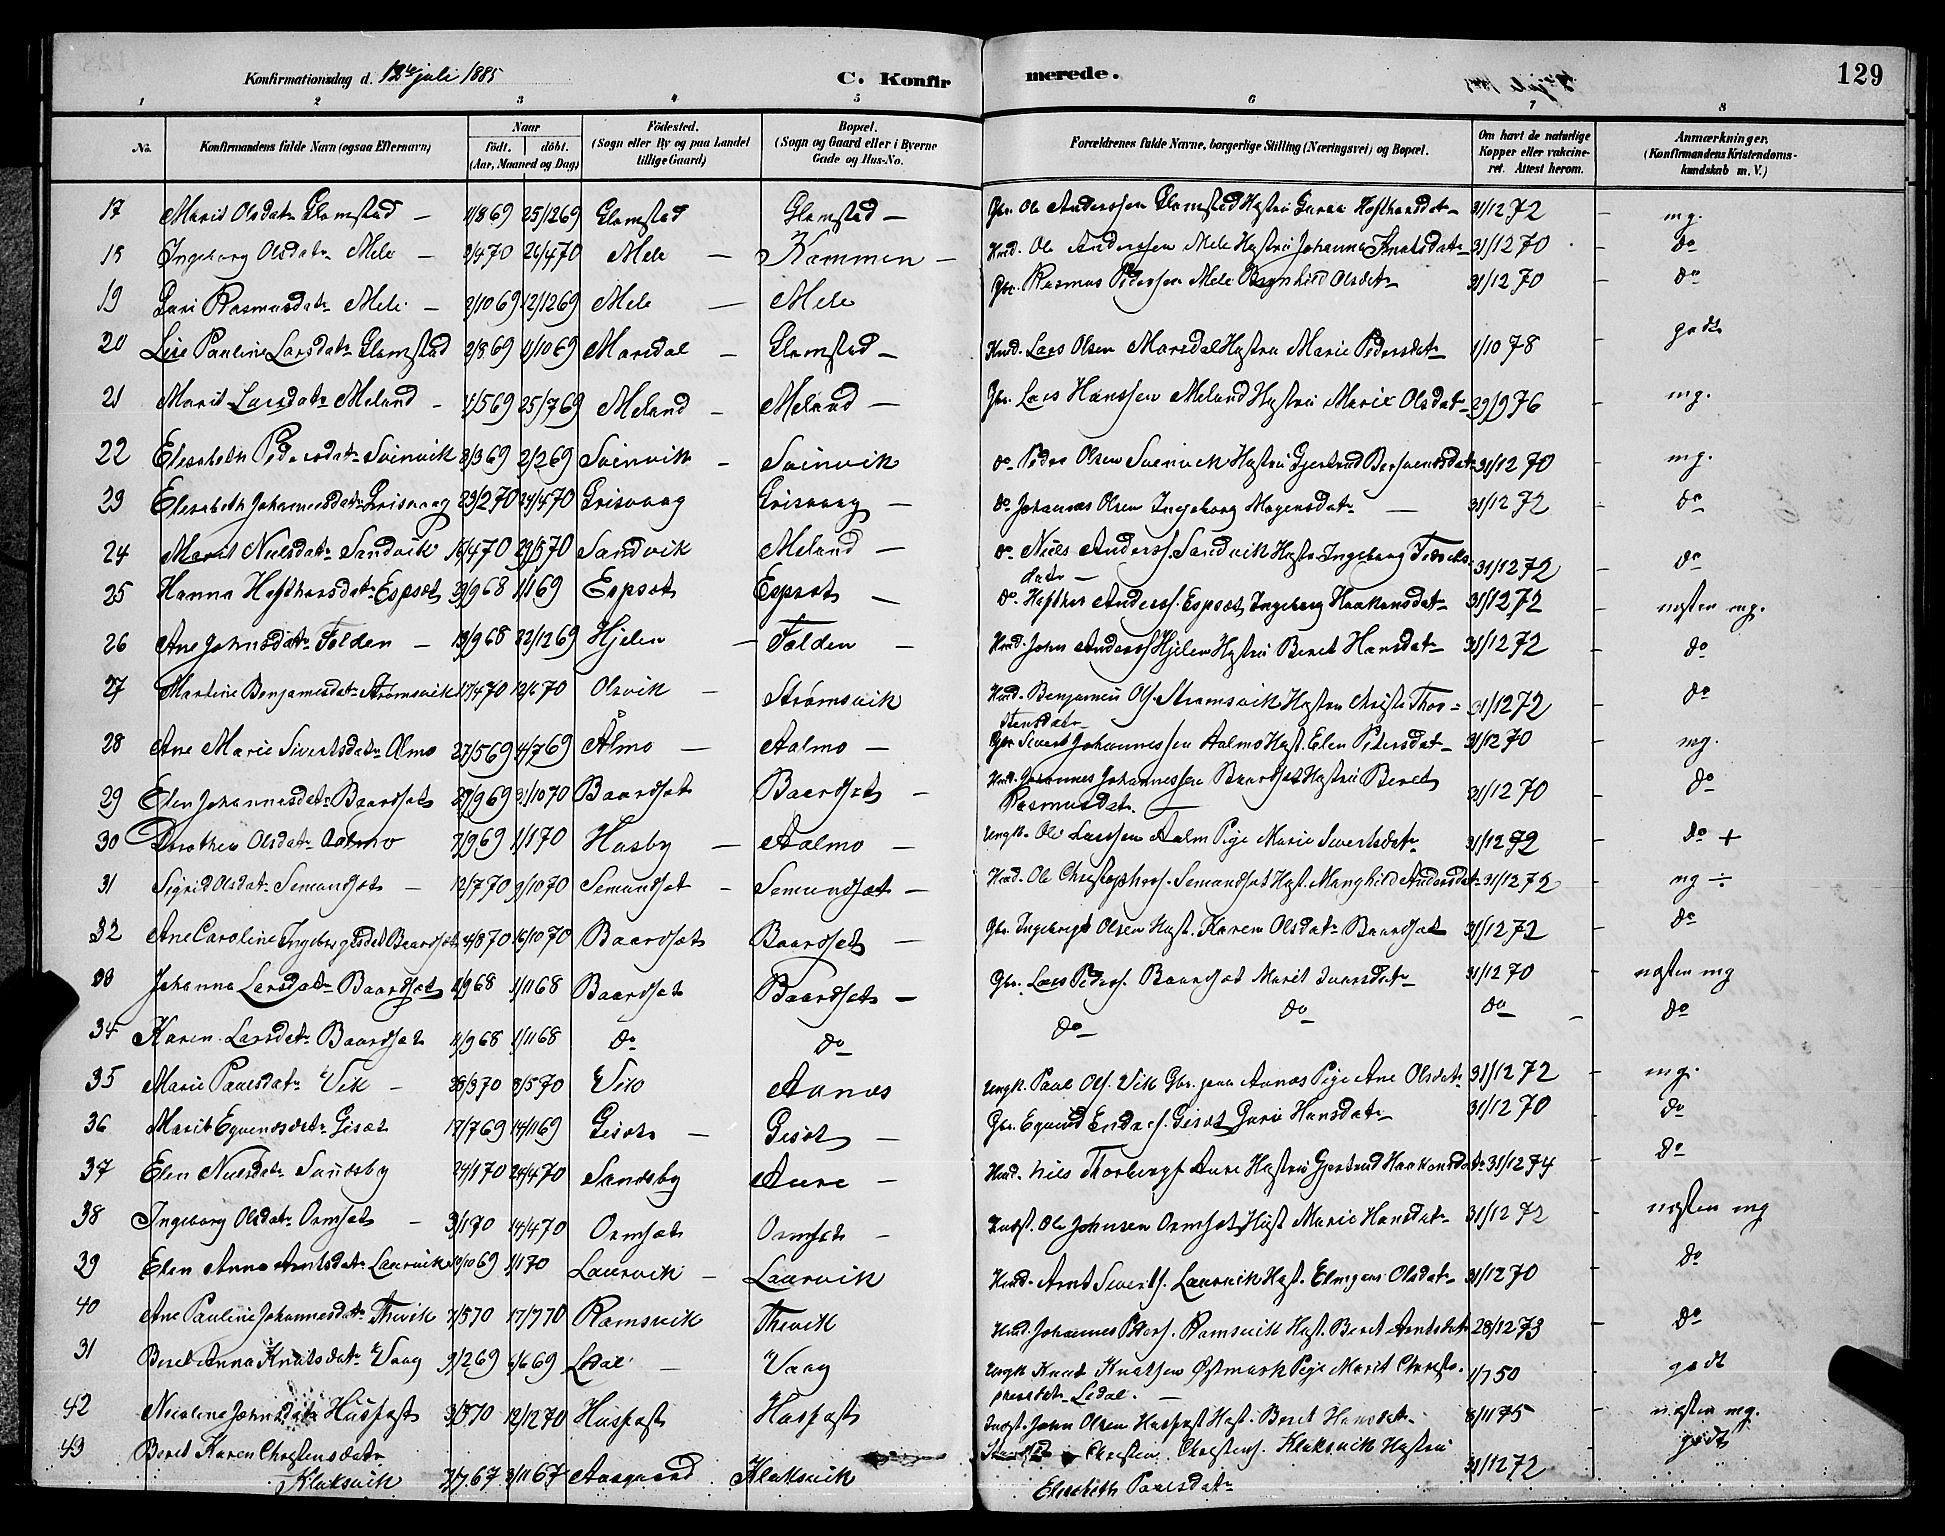 Konfirmationsdag d. 12te juli 1885 C. Konfirmerede. 129
1 2 3 4 5 6 7 8
No. Konfirmandens fulde Navn (ogsaa Efternavn) Naar født. døbt. (Aar, Maaned og Dag) Fødested. (Sogn eller By og paa Landet tillige Gaard) Bopæl. (Sogn og Gaard eller i Byerne Gade og Hus-No. Forældrenes fulde Navne, borgerlige Stilling (Næringsvei) og Bopæl. Om havt de naturlige Kopper eller vakcineret. Attest herom. Anmærkninger. (Konfirmandens Kristendomskundskab m. V.)
17 Marit Olsdatr Glamstad – 1/8 69 25/12 69 Glamstad Glamstad – Gbr. Ole Anderssen Glamstad Hustru Guru Hafthorsdatr 31/12 72 – mg.
18 Ingeborg Olsdatr Mele – 3/4 70 26/4 70 Mele – Kammen – Hmd. Ole Anderssen Mele Hustru Johanna Knutsdatr 31/12 70 do
19 Guri Rasmusdatr Mele – 2/10 69 12/12 69 Mele – Mele Gbr. Rasmus Pedersen Mele Ragnhild Olsdatr 31/12 70 – do
20 Lise Pauline Larsdatr Glamstad 2/8 69 1/10 69 Marsdal – Glamstad – Hmd. Lars Olsen Marsdal Hustru Marie Pedersdatr 1/10 78 – godt
21 Marit Larsdatr Meland – 1/5 69 25/7 69 Meland – Meland – Gbr. Lars Hanssen Meland Hustru Marie Olsdatr 29/9 76 – mg.
22 Elisabeth Pedersdatr Svinvik 3/3 69 2/2 69 Svinvik – Svinvik do Peder Olsen Svinvik Hustru Gjertrud 31/12 70 – mg.
23 Elisabeth Johannesdatr Grisvaag 23/2 70 24/4 70 Grisvaag Grisvaag – do Johannes Olsen Ingeborg Mogensdatr – 31/12 72 – do
24 Marit Nielsdatr Sandvik 16/4 70 29/5 70 Sandvik Meland – do Niels Anderss. Sandvik Hustru Ingeborg
datr – 31/12 72 – do
25 Hanna Hafthorsdatr Espset 30/9 68 1/1 69 Espset Espset – do Hafthor Anderss. Espset, Ingeborg Haakonsdatr 31/12 72 – næsten mg.
26 Ane Johnsdatr Folden – 13/9 68 22/12 69 Hjelen – Folden – Hmd. John Anderss Hjelen Hustru Beret Hansdatr 31/12 72 – do
27 Martine Benjaminsdatr Strømsvik 17/4 70 12/6 70 Olsvik – Strømsvik Hmd. Benjamin Ols. Strømsvik Hustru Christi Thorstensdatr 31/12 72 – do
28 Ane Marie Sivertsdatr Almo 27/5 69 4/7 69 Ålmo – Aalmo – Gbr Sivert Johannessen Aalmo Hust. Elen Pedersdatr 31/12 70 – mg.
29 Elen Johannesdatr Baardset 29/9 69 31/10 70 Baardset Baardset – Hmd. Johannes Johannessen Baardset Hustru Beret
Rasmusdat. – 31/12 70 – do
30 Dorothea Olsdatr Aalmo 7/9 69 1/1 70 Husby – Aalmo – Ungk. Ole Larssen Aalm Pige Marie Sivertsdatr 31/12 72 – do +
31 Sigrid Olsdatr Semundset – 12/7 70 9/10 70 Semundset – Semundset – Hmd. Ole Christophers. Semundset Hust. Manghild Andersdat 31/12 72 – mg ÷
32 Ane Caroline Ingebrigtsdat Baardset 4/8 70 16/10 70 Baardset Baardset – Gbr. Ingebrigt Olsen Hust. Karen Olsdatr Baardset 31/12 72 – do
33 Johanna Larsdatr Baardset 11/9 68 1/11 68 Baardset Baardset – Gbr. Lars Peders. Baardset Marit Ivarsdatr 31/12 70 næsten mg
34 Karen Larsdatr Baardset 11/9 68 1/11 68 do do do do do – do
35 Marie Paulsdatr Vik – 28/3 70 8/5 70 Vik Aanes Ungk. Paul Ols. Vik Gbr. paa Aanæs Pige Ane Olsdatr 31/12 72 – mg.
36 Marit Eguendsdatr Gisæt 17/7 69 14/11 69 Gisæt – Gisæt – Gbr. Eguend Endres. Gisæt Guri Hansdatr 31/12 70 – do
37 Elen Nielsdatr Sandsby 24/1 70 24/4 70 Sandsby Aure – Hmd. Nils Thorbergs Aure Hustru Gjertrud Haakonsdatr 31/12 74 – do
38 Ingeborg Olsdatr Ormset – 3/1 70 14/4 70 Ormset Ormset – Indst. Ole Johnsen Ormset, Hust Marie Hansdatr 31/12 72 – næsten mg
39 Elen Anna Arntsdatr Laurvik 10/10 69 1/1 70 Laurvik – Laurvik Hmd. Arnt Siverts. Laurvik Hust. Olsdatr 31/12 70 – do
40 Ane Pauline Johannesdatr Thevik 7/5 70 17/7 70 Ramsvik Thevik Hmd. Johannes Peters. Ramsvik Hust. Beret Arntsdat 28/12 73 – do
31 Beret Anna Knutsdatr Vaag 9/2 69 6/6 69 Ledal – Vaag Ungk. Knut Knutsen Østmark Pige Marit Christophersdatr Ledal. – 1/7 50 – godt
42 Nicoline Johnsdatr Husfast 3/5 70 12/12 70 Husfast Husfast Indst. John Olsen Husfast Hust. Beret Hansdatr 8/11 75 – næsten mg.
43 Beret Karen Christensdatr
Klaksvik 7/7 67 3/11 67 Aasgaard Klaksvik Christen Christens. Klaksvik Hustru
Elisabeth Paulsdatr 31/12 72 – godt